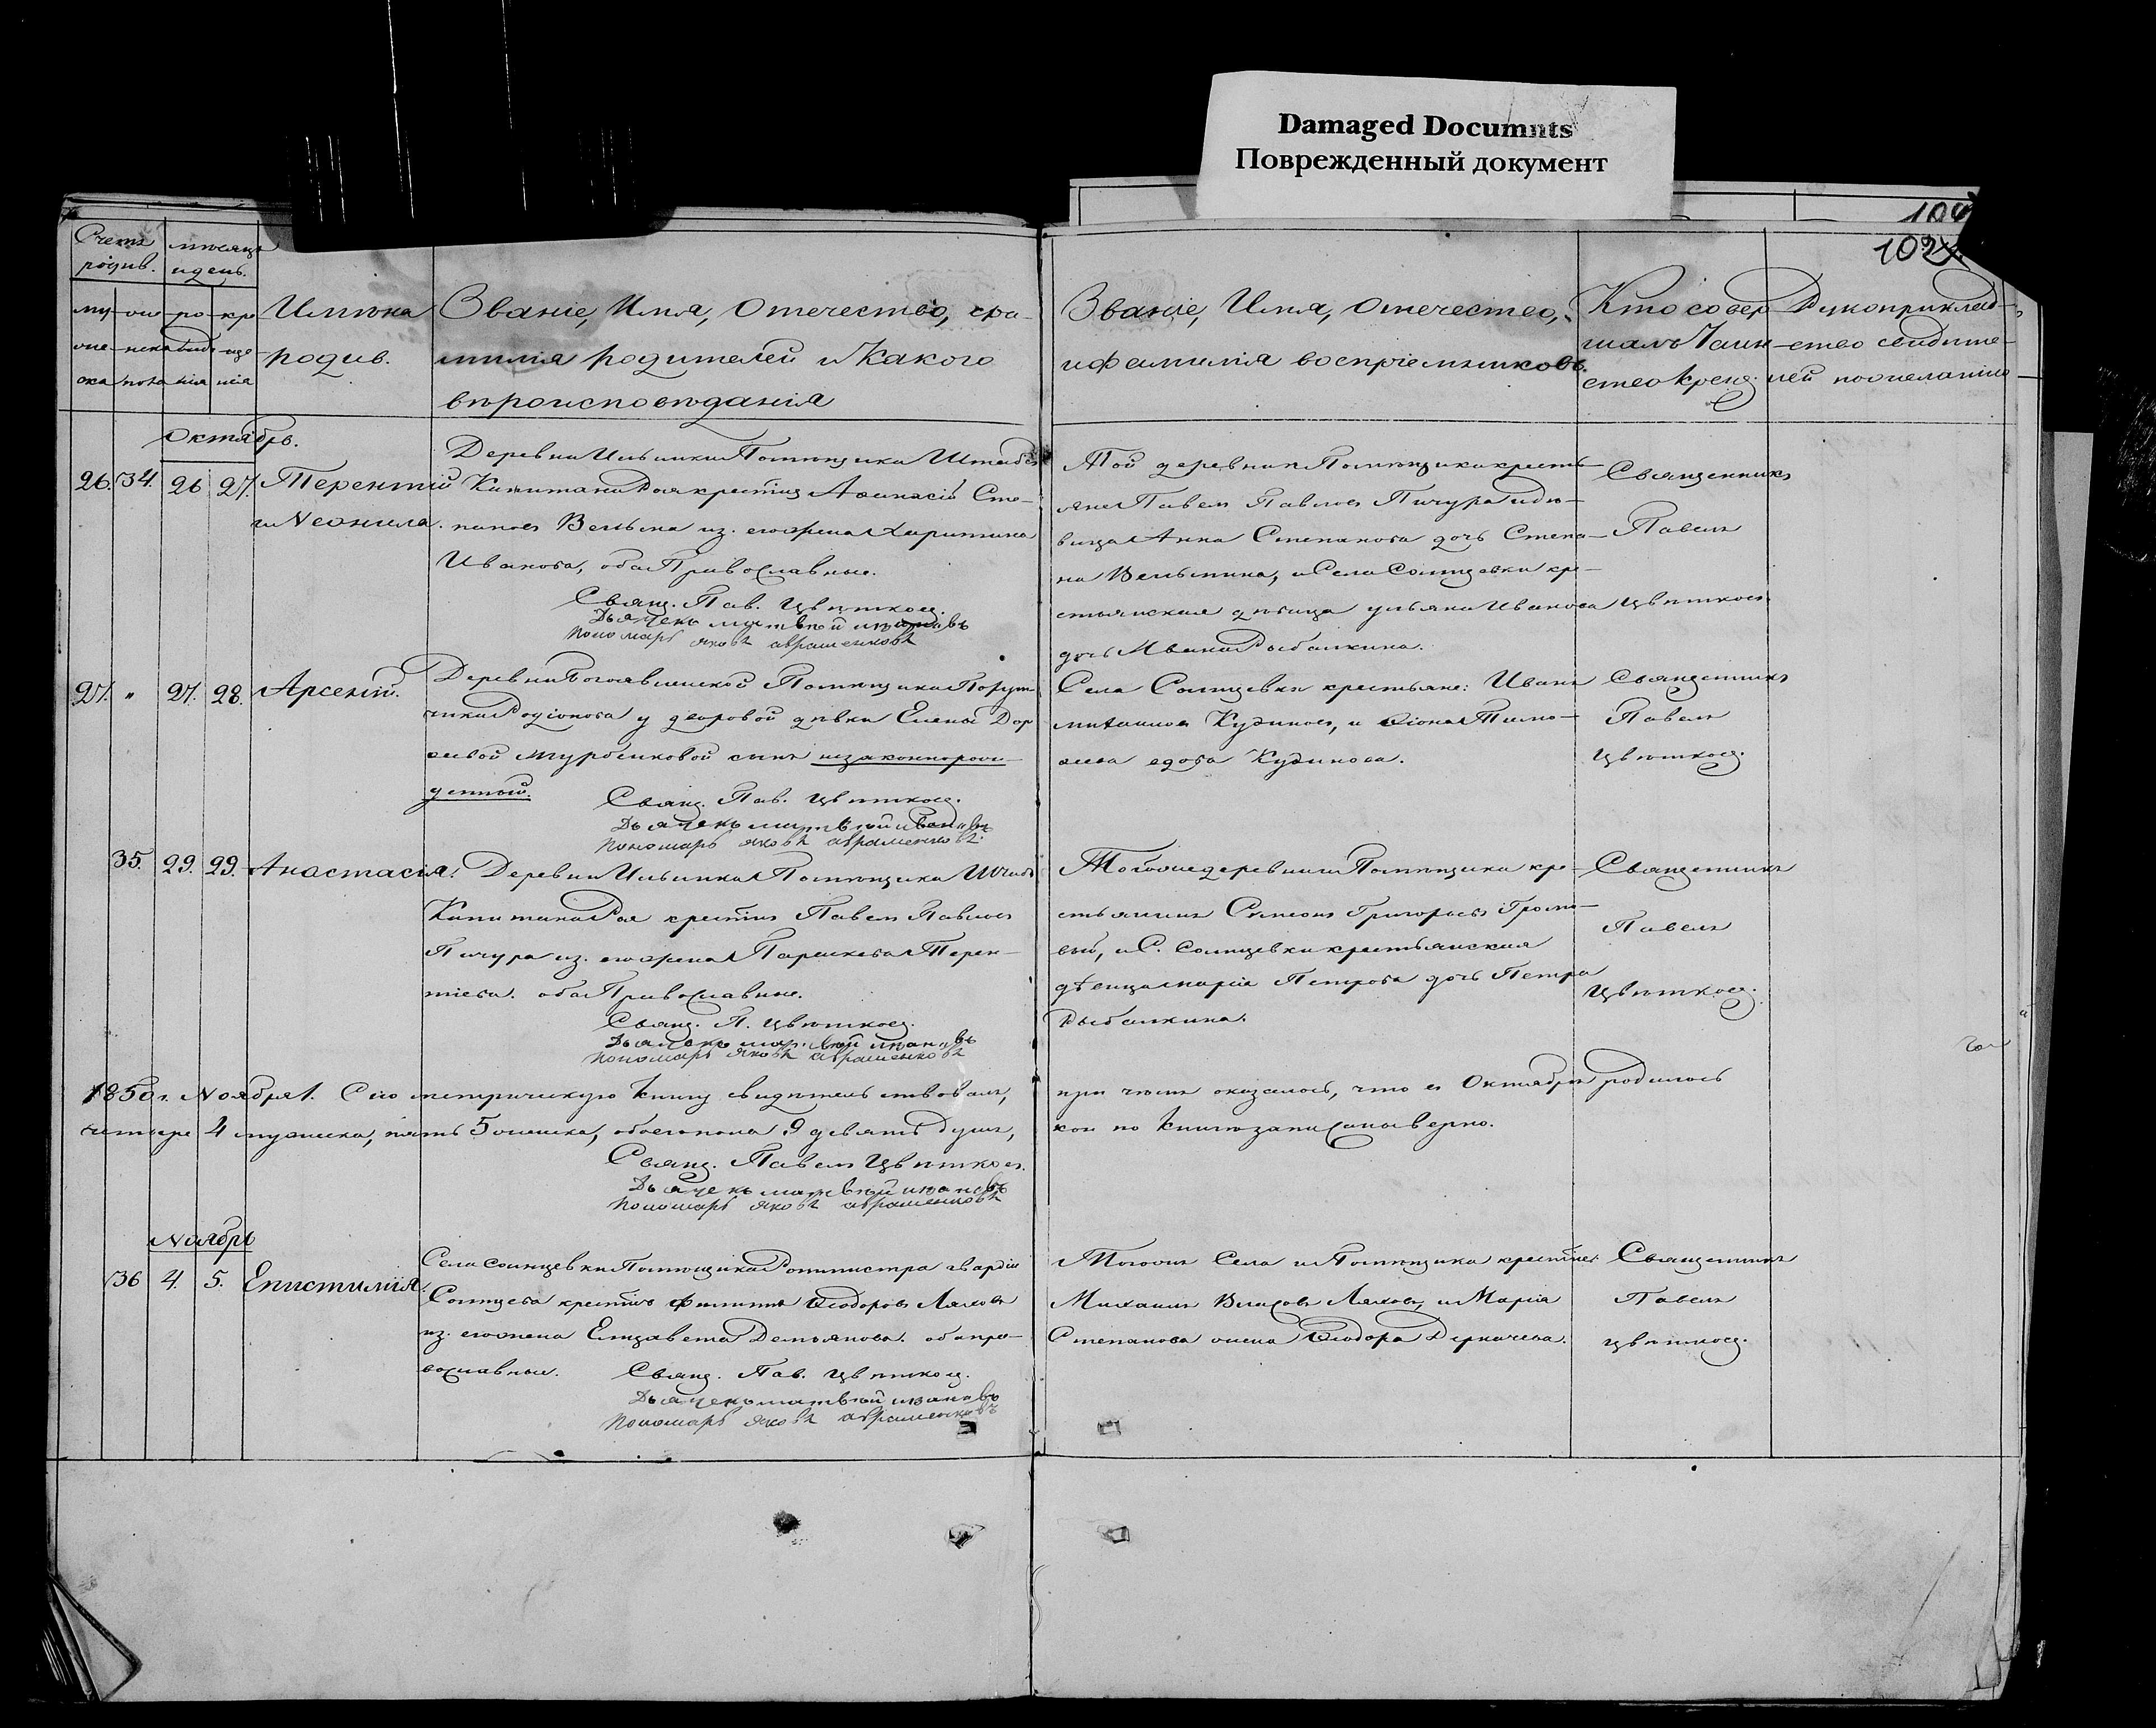 Damaged Documnts
Поврежденный документ
102
Счетъ родив.
мѣсяцъ и день.
Имѣна родив.
Званіе, Имя, Отечество, фа-
милія родителей и Какого
вѣроисповѣданія
Званіе, Имя, Отечество,
и фамилія воспріемниковъ.
Кто совер-
шалъ Таин-
ство Крещ.
Рукоприклад-
ство свидите-
лей по желанію
Октябрь.
26. 34. 26 27. Терентій
и Неонила.
Деревни Ильинки Помѣщика Штабсъ
Капитана Роя крестнъ Аѳанасій Сте-
пановъ из. его жена Харитина
Иванова, оба Православные.
Свящ. Пав. Цвѣтковъ.
Дьячекъ матвѣй ивановъ
Пономарь яковъ авраменковъ
Той деревни и Помѣщика кресть-
яне Павелъ Павловъ Пичура и дѣ-
вица Анна Степанова дочь Степа-
на и Села Солнцевки кре-
стьянская дѣвица ульяна Иванова
дочь Ивана Рыбалкина.
Священникъ
Павелъ
Цвѣтковъ
27. " 27. 28. Арсеній.
Деревни Богоявленской Помѣщика Поруч
чика Родіонова у дворовой дѣвки Елены Дор
оѳеевой сынъ незаконнорож-
денный.
Свящ. Пав. Цвѣтковъ.
Дьячекъ матвѣй ивановъ
Пономарь яковъ авраменковъ.
Села Солнцевки крестьяне: Иванъ
Михаиловъ Кудиновъ, и Тимо-
ѳеева вдова Кудинова.
Священникъ
Павелъ
Цвѣтковъ.
35. 29. 29. Анастасія.
Деревни Ильинки Помѣщика Штабс
Капитана Роя крестнъ Павелъ Павловъ
Пичура из. его жена Параскева Терен-
тіева. оба Православные.
Свящ. П. Цвѣтковъ.
Дьячекъ матвѣй ивановъ
Пономарь яковъ авраменковъ
Тогожъ деревни и Помѣщика кре-
стьянинъ Симеонъ Григорьевъ Громо-
вый, и С. Солнцевки крестьянская
дѣвица марія Петрова дочь Петра
Рыбалкина.
Священникъ
Павелъ
Цвѣтковъ.
1850 г. Ноября 1. Сію метрическую книгу свидѣтельствовалъ, при чемъ оказалось, что въ Октябрѣ родилось
четыре 4 мужеска, пять 5 женска, обоего пола 9 девять душъ, кои по книгѣ записаны верно.
Свящ. Павелъ Цвѣтковъ.
Дьячекъ матвѣй ивановъ
Пономарь яковъ авраменковъ
Ноябрь
36 4. 5. Епистимія.
Села Солнцевки Помѣщика Ротмистра гвардіи
Солнцева крестнъ Филиппъ Ѳеодоровъ Ляховъ
из. его жена Елизавета Демьянова. оба пра-
вославные.
Свящ. Пав. Цвѣтковъ.
Дьячекъ матвѣй ивановъ
Пономарь яковъ авраменковъ
Тогожъ Села и Помѣщика крестне:
Михаилъ Власовъ Ляховъ, и Марія
Степанова жена Ѳеодора Деркачева.
Священникъ
Павелъ
Цвѣтковъ.